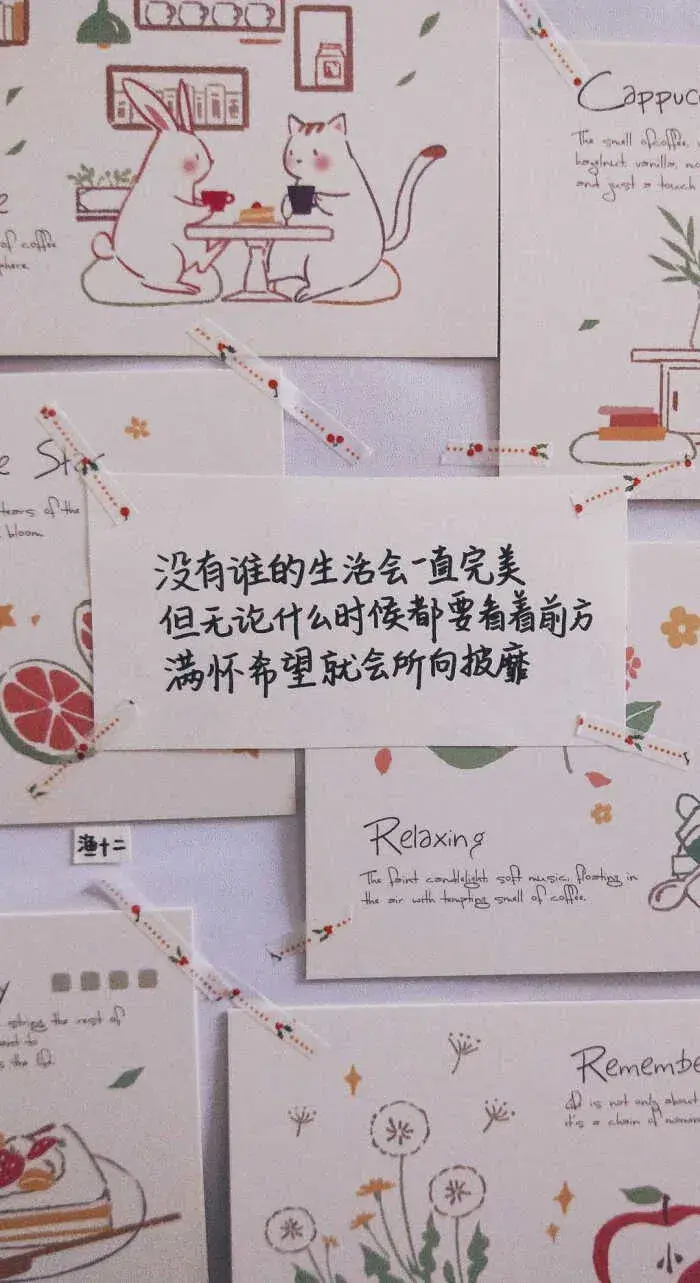 Cappuc
The smell of coffee,
hazelnut vanilla,
and just a touch
of coffee
e Star
tears of the
bloom
没有谁的生活会一直完美
但无论什么时候都要看着前方
满怀希望就会所向披靡
渔十二
Relaxing
The faint candlelight soft music, floating in
the air with tempting smell of coffee.
y
string the rest of
the life.
Remembe
is not only about
it's a chain of
小